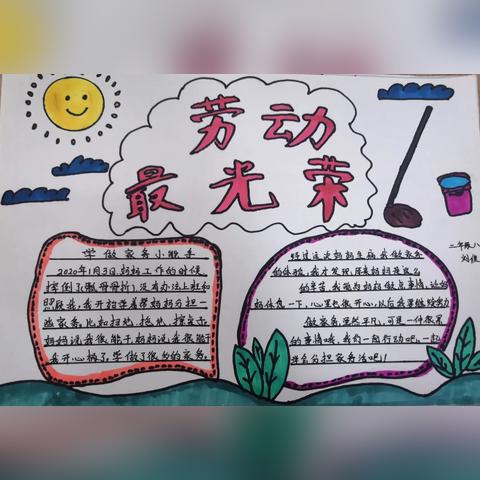 劳动
最光荣
学做家务小能手
2020年1月3日,妈妈工作的时候
摔倒了(飘骨骨折),没有办法上班和
照顾我,我开始学着帮妈妈分担一
些家务,比如扫地、拖地、擦桌子
妈妈说我很能干,妈妈说我很能干
我开心极了,学做了很多的家务。
经过这次妈妈生病,我做家务
的体验,我才发现,原来妈妈是这么
的辛苦,我能为妈妈做点事情,让妈
妈休息一下,心里很很开心,以后我要继续努力
做家务虽然平凡,可是一件很累
的事情哦,我们一起行动吧,一起
学会分担家务活吧!
三年级八
刘俊